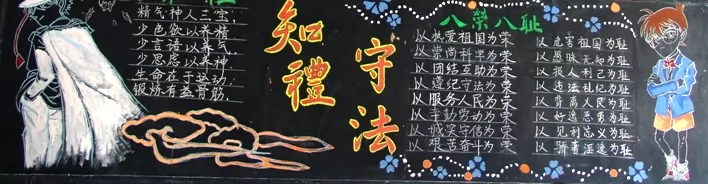 精气神人三宝
少色欲以养精
少言语以养气
少思虑以养神
生命在于运动
锻炼有益骨筋
知禮
守法
八荣八耻
以热爱祖国为荣
以崇尚科学为荣
以团结互助为荣
以遵纪守法为荣
以服务人民为荣
以辛勤劳动为荣
以诚实守信为荣
以艰苦奋斗为荣
以危害祖国为耻
以愚昧无知为耻
以损人利己为耻
以违法乱纪为耻
以背离人民为耻
以好逸恶劳为耻
以见利忘义为耻
以骄奢淫逸为耻